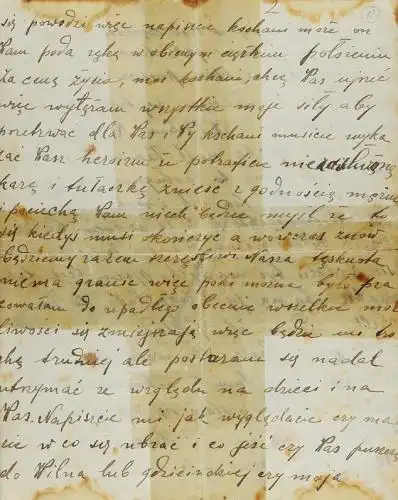 2
się powodzi więc napiszcie kochani może on
Wam poda rękę w obecnym ciężkim położeniu
Za cenę życia, moi kochani, chcę Was ujrzeć
więc wytężam wszystkie moje siły aby
przetrwać dla Was i Wy kochani musicie wyka
zać Wasz heroizm że potraficie niezasłużoną
karę i tułaczkę znieść z godnością mężnie
i pociechą Wam niech będzie myśl że to
się kiedyś musi skończyć a wówczas znów
będziemy razem szczęśliwi Nasza tęsknota
niema granic więc póki można było pra
cowałam do upadłego obecnie wszelkie moż
liwości się zmniejszają więc będzie mi tro
chę trudniej ale postaram się nadal
utrzymać ze względu na dzieci i na
Was. Napiszcie mi jak wyglądacie czy ma
cie w co się ubrać i co jeść czy Was puszczą
do Wilna lub gdzieindziej czy moja